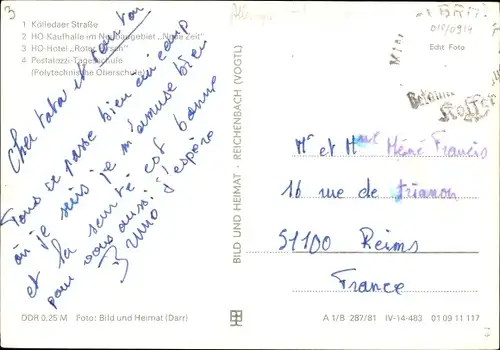 3
1 Kölledaer Straße
2 HO-Kaufhalle im Neubaugebiet "Neue Zeit"
3 HO-Hotel "Roter Hirsch"
4 Pestalozzi-Tagesschule
(Polytechnische Oberschule)
Cher tata et tonton
Tous ce passe bien au camp
où je suis je m'amuse bien
et la santé est bonne
pour vous aussi j'espère
Bruno
DDR 0,25 M Foto: Bild und Heimat (Darr)
BILD UND HEIMAT - REICHENBACH (VOGTL)
Echt Foto
Mr et Mme Héné Francis
16 rue de trianon
51100 Reims
France
A 1/B 287/81 IV-14-483 01 09 11 117